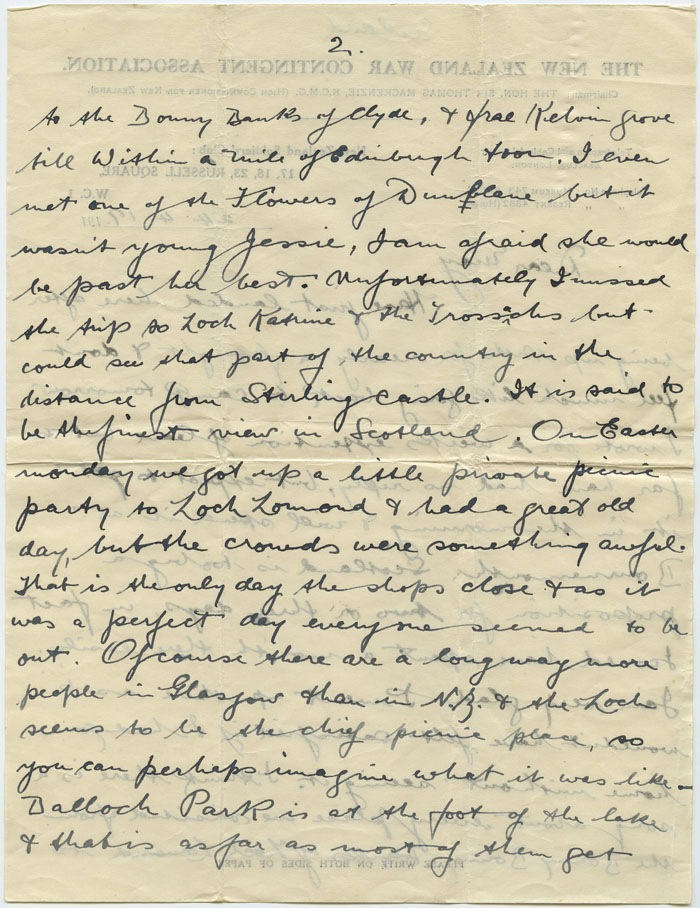 2.
to the Bonny Banks of Clyde, & frae Kelvin grove
till within a mile of Edinburgh toon. I even
met one of the Flowers of Dunblane but it
wasn't young Jessie, I am afraid she would
be past her best. Unfortunately I missed
the trip to Loch Katrine & the Trossachs but
could see that part of the country in the
distance from Stirling castle. It is said to
be the finest view in Scotland. On Easter
monday we got up a little private picnic
party to Loch Lomond & had a great old
day, but the crowds were something awful.
That is the only day the shops close & as it
was a perfect day everyone seemed to be
out. Of course there are a long way more
people in Glasgow than in N.Z. & the Loch
seems to be the chief picnic place, so
you can perhaps imagine what it was like —
Balloch Park is at the foot of the lake
& that is as far as most of them get